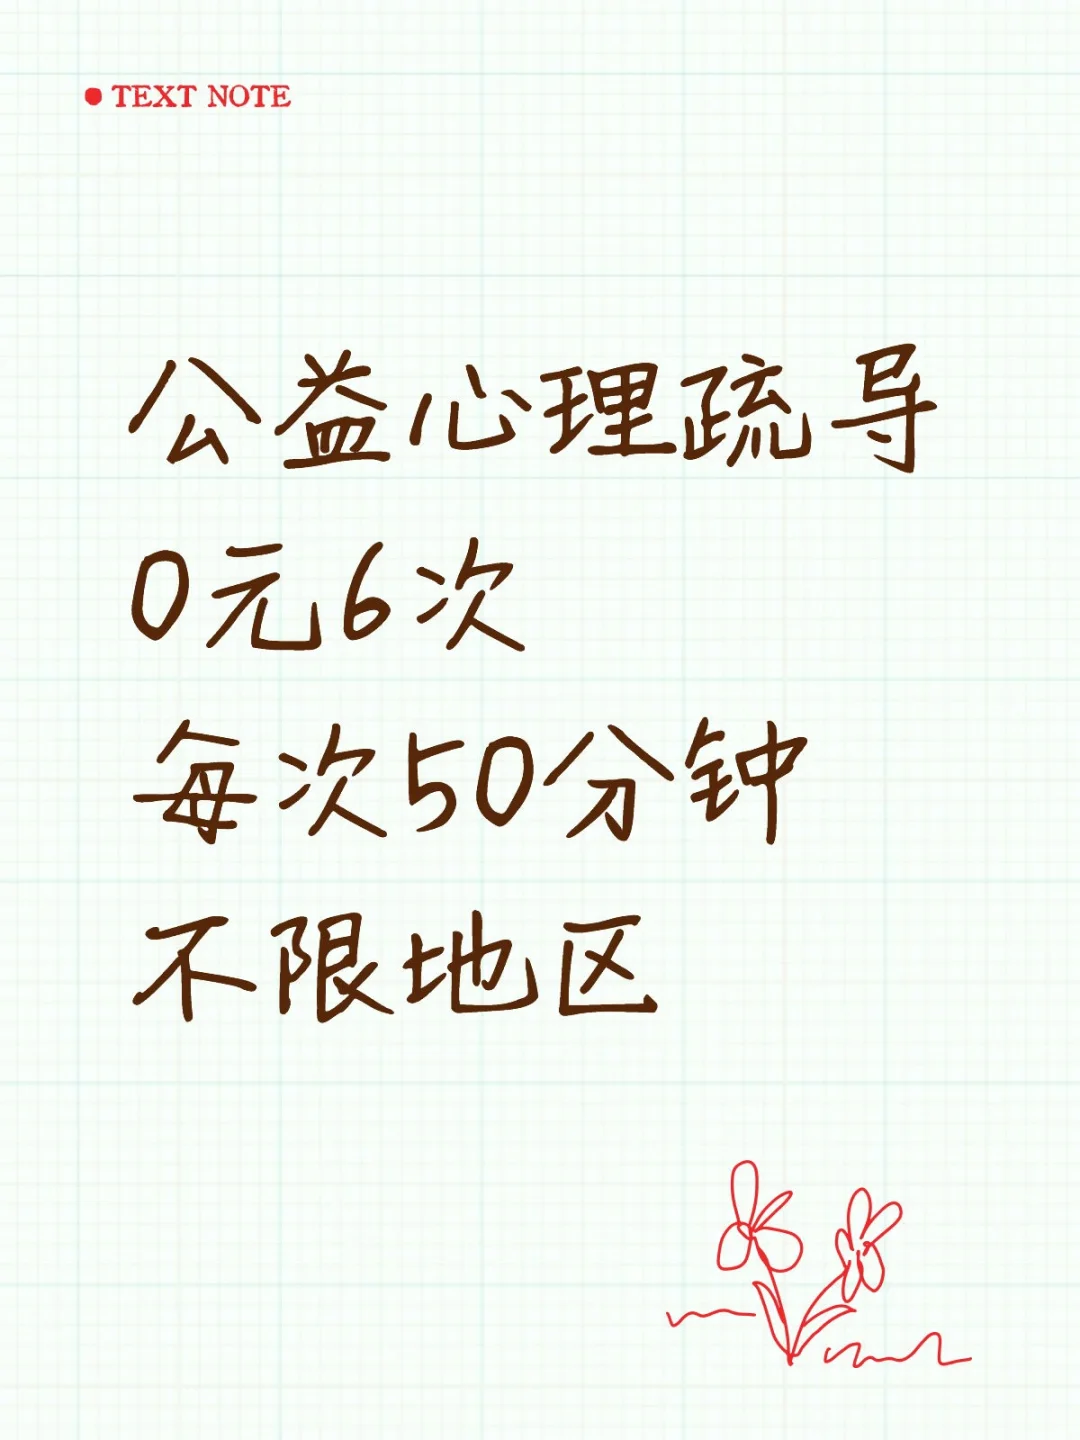 TEXT NOTE
公益心理疏导
0元6次
每次50分钟
不限地区